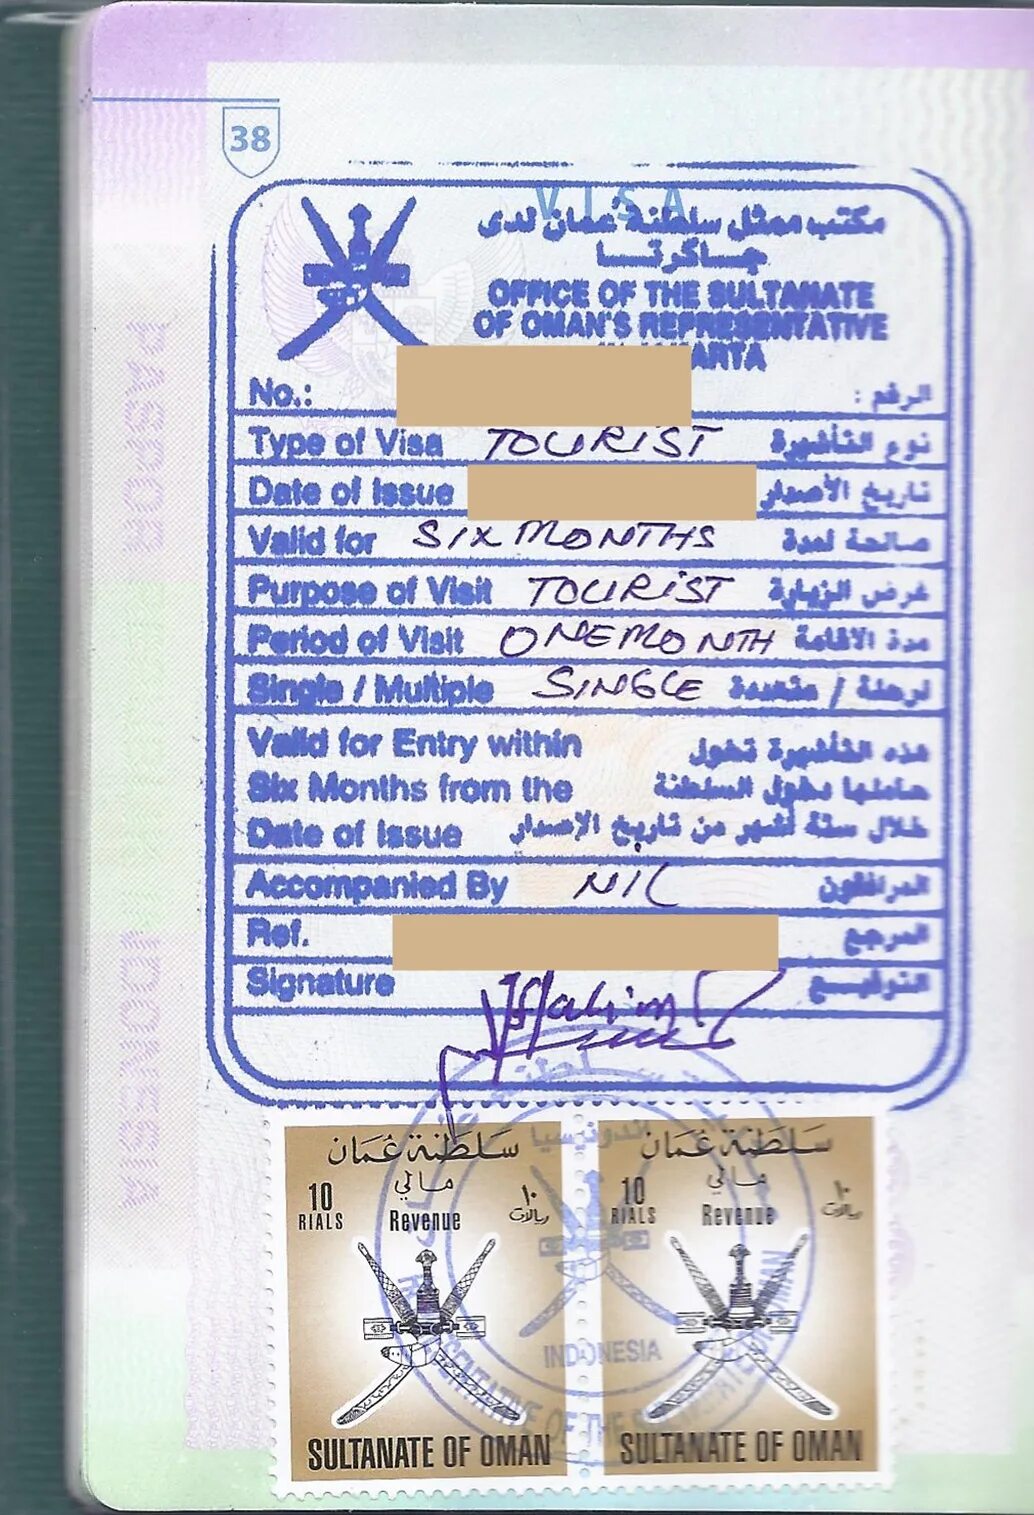 38
VISA
مكتب ممثل سلطنة عمان لدى
جاكرتا
OFFICE OF THE SULTANATE
OF OMAN'S REPRESENTATIVE
No.: الرقم :
Type of Visa TOURIST نوع التأشيرة
Date of Issue تاريخ الأصدار
Valid for SIX MONTHS صالحة لمدة
Purpose of Visit TOURIST غرض الزيارة
Period of Visit ONE MONTH مدة الاقامة
Single / Multiple SINGLE لرحلة / متعددة
Valid for Entry within هذه التأشيرة تخول
Six Months from the حاملها دخول السلطنة
Date of Issue خلال ستة أشهر من تاريخ الإصدار
Accompanied By NIL المرافقون
Ref. المرجع
Signature التوقيع
سلطنة عمان سلطنة عمان
مالي مالي
10 RIALS Revenue ١٠ ريالات 10 RIALS Revenue ١٠ ريالات
اندونيسيا
INDONESIA
SULTANATE OF OMAN SULTANATE OF OMAN